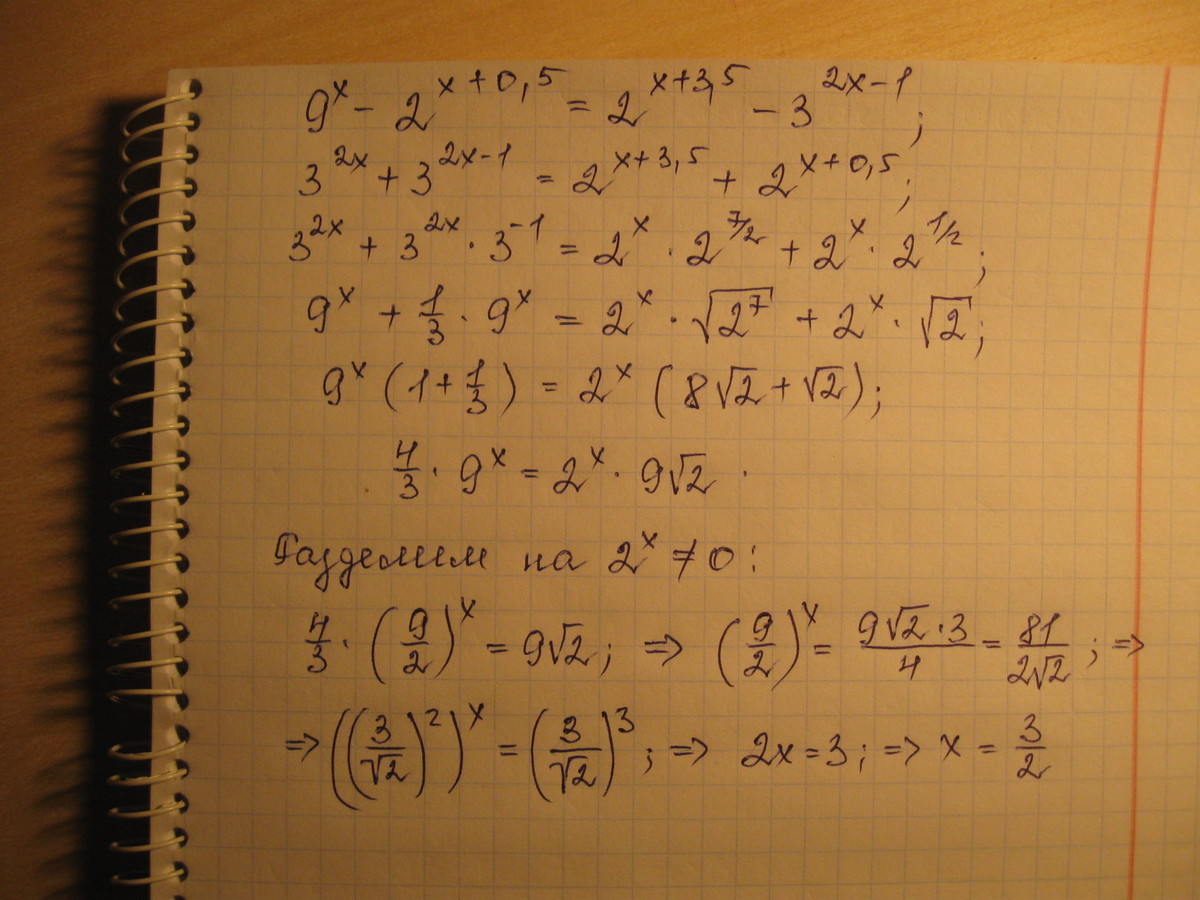 9^x − 2^(x+0,5) = 2^(x+3,5) − 3^(2x−1);
3^(2x) + 3^(2x−1) = 2^(x+3,5) + 2^(x+0,5);
3^(2x) + 3^(2x) · 3^(−1) = 2^x · 2^(7/2) + 2^x · 2^(1/2);
9^x + 1/3 · 9^x = 2^x · √(2^7) + 2^x · √2;
9^x (1 + 1/3) = 2^x (8√2 + √2);
4/3 · 9^x = 2^x · 9√2 .
Разделим на 2^x ≠ 0:
4/3 · (9/2)^x = 9√2; ⇒ (9/2)^x = (9√2·3)/4 = 81/(2√2); ⇒
⇒ ((3/√2)^2)^x = (3/√2)^3; ⇒ 2x = 3; ⇒ x = 3/2